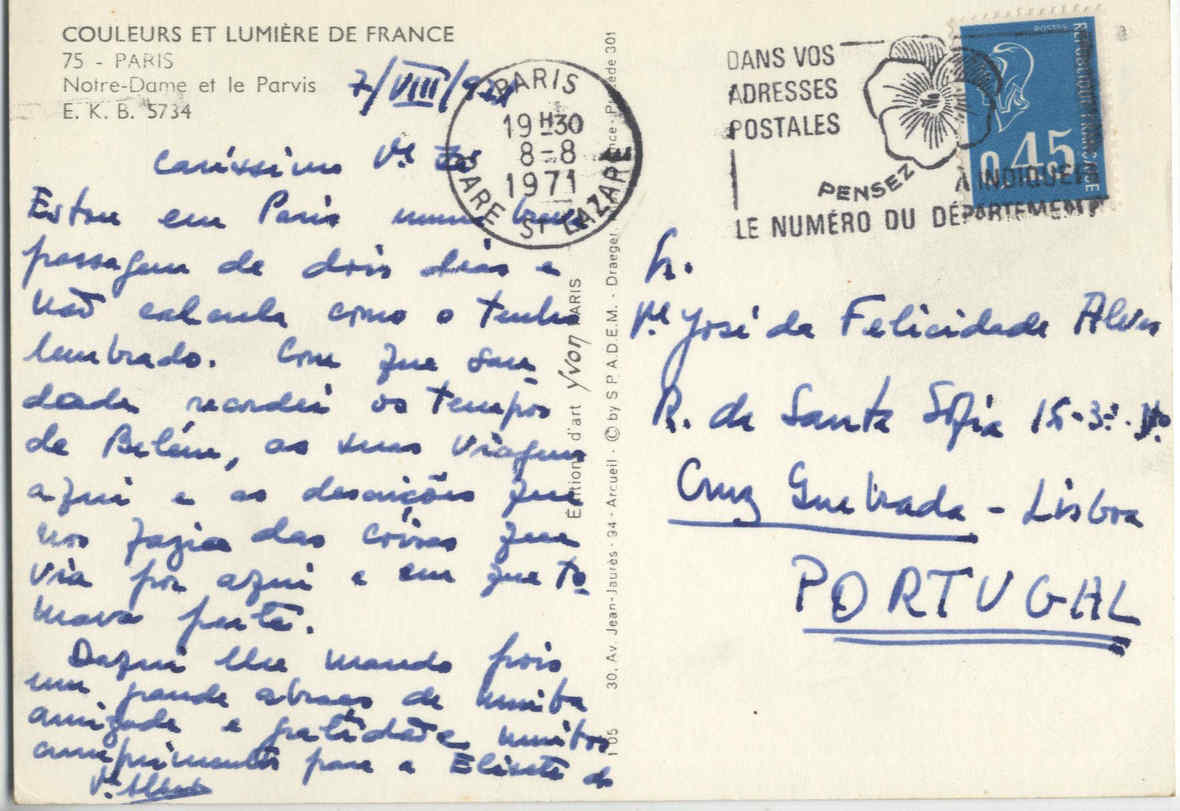 COULEURS ET LUMIÈRE DE FRANCE
75 - PARIS
Notre-Dame et le Parvis
E. K. B. 5734
7/VIII/971
Caríssimo Pe
Estou em Paris numa breve
passagem de dois dias e
não calcula como o tenho
lembrado. Com que sau-
dade recordei os tempos
de Belém, as suas viagens
aqui e as descrições que
nos fazia das coisas que
via por aqui e em que to-
mava parte.
Daqui lhe mando pois
um grande abraço de muita
amizade e gratidão e muitos
cumprimentos para a Elisete do
PARIS
19 H 30
8-8
1971
GARE ST LAZARE
DANS VOS
ADRESSES
POSTALES
PENSEZ
À INDIQUER
LE NUMÉRO DU DÉPARTEMENT
POSTES
REPUBLIQUE FRANÇAISE
0,45
Éditions d'art Yvon PARIS
30, Av. Jean-Jaurès - 94 - Arcueil - © by S.P.A.D.E.M. - Draeger, France - Procédé 301
105
Sr.
Pe José da Felicidade Alves
R. de Santa Sofia 15-3º-
Cruz Quebrada - Lisboa
PORTUGAL